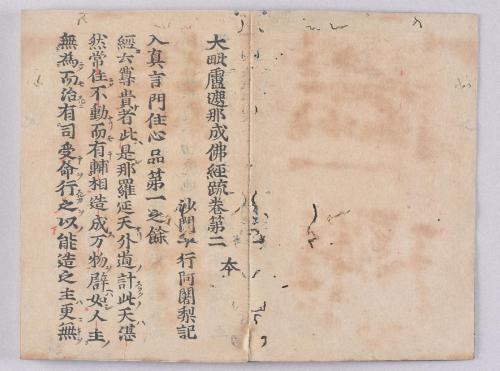 大毗盧遮那成佛經疏卷第二 本
沙門一行阿闍梨記
入真言門住心品第一之餘
經云尊貴者此是那羅延天外道計此天湛
然常住不動而有輔相造成万物譬如人主
無為而治有司受命行之以能造之主更無